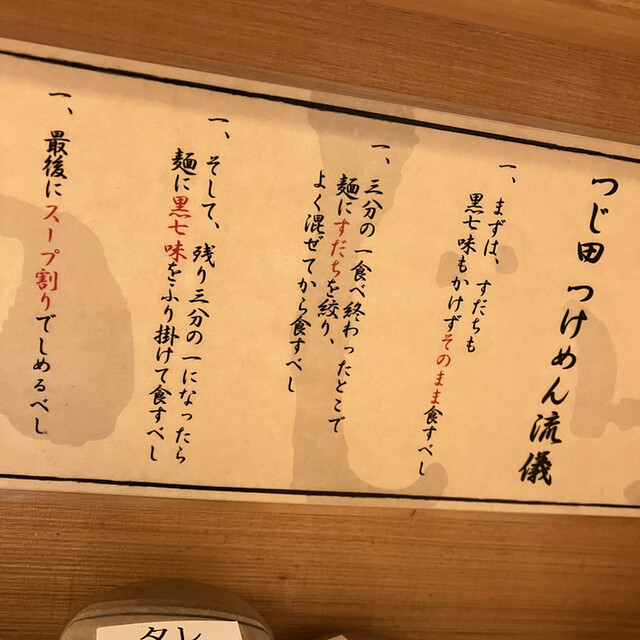 つじ田 つけめん流儀
一、まずは、すだちも
黒七味もかけずそのまま食すべし
一、三分の一食べ終わったとこで
麺にすだちを絞り、
よく混ぜてから食すべし
一、そして、残り三分の一になったら
麺に黒七味をふり掛けて食すべし
一、最後にスープ割りでしめるべし
タレ